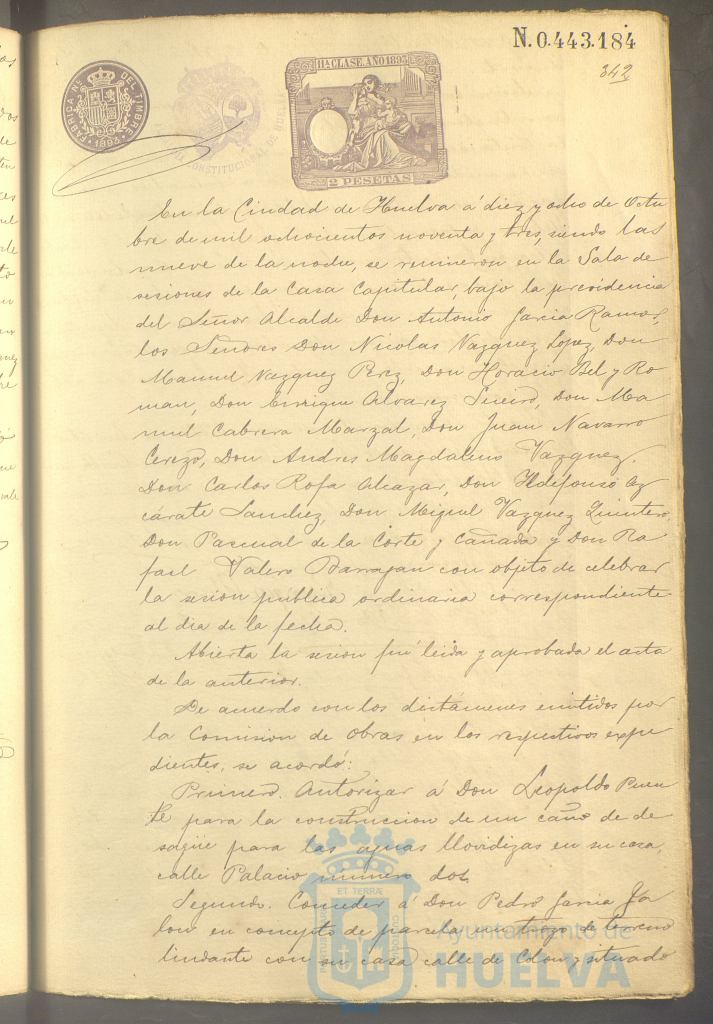 N. 0.443.184
342
11ª CLASE. AÑO 1893
FABRICA Nal. DEL TIMBRE
1893
CONSTITUCIONAL DE HUELVA
2 PESETAS
En la Ciudad de Huelva á diez y ocho de Octu
bre de mil ochocientos noventa y tres, siendo las
nueve de la noche, se reunieron en la Sala de
sesiones de la Casa Capitular, bajo la presidencia
del Señor Alcalde Don Antonio Garcia Ramos,
los Señores Don Nicolas Vazquez Lopez, Don
Manuel Vazquez Perez, Don Horacio Bel y Ro
man, Don Enrique Alvarez Sueiro, Don Ma
nuel Cabrera Marzal, Don Juan Navarro
Cerezo, Don Andres Magdaleno Vazquez,
Don Carlos Rofa Alcazar, Don Ildefonso Az
cárate Sanchez, Don Miguel Vazquez Quintero,
Don Pascual de la Corte y Cañada y Don Ra
fael Valero Barragan con objeto de celebrar
la sesion pública ordinaria correspondiente
al dia de la fecha.
Abierta la sesion fué leida y aprobada el acta
de la anterior.
De acuerdo con los dictámenes emitidos por
la Comision de Obras en los respectivos expe
dientes, se acordó:
Primero. Autorizar á Don Leopoldo Puen
te para la construccion de un caño de de
sagüe para las aguas llovidizas en su casa,
calle Palacio número dos.
Segundo. Conceder á Don Pedro Garcia Ja
lon en concepto de parcela un trozo de terreno
lindante con su casa calle de Colon y situado
ET TERRÆ
Ayuntamiento de
HUELVA